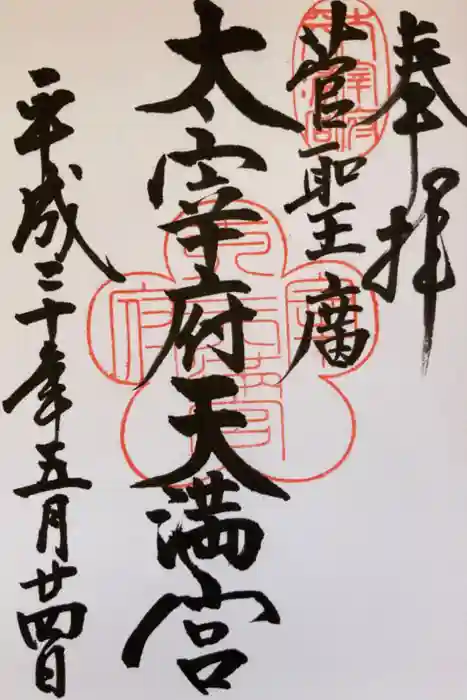 奉拝
菅聖庿
太宰府天満宮
平成三十年五月廿四日